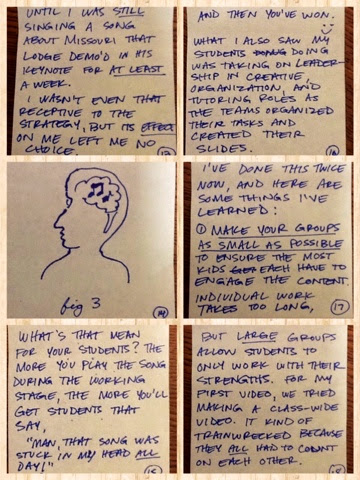 UNTIL I WAS STILL
SINGING A SONG
ABOUT MISSOURI THAT
LODGE DEMO'D IN HIS
KEYNOTE FOR AT LEAST
A WEEK.
I WASN'T EVEN THAT
RECEPTIVE TO THE
STRATEGY, BUT ITS EFFECT
ON ME LEFT ME NO
CHOICE.
13
fig 3
14
WHAT'S THAT MEAN
FOR YOUR STUDENTS? THE
MORE YOU PLAY THE SONG
DURING THE WORKING
STAGE, THE MORE YOU'LL
GET STUDENTS THAT
SAY,
"MAN, THAT SONG WAS
STUCK IN MY HEAD ALL
DAY!"
15
AND THEN YOU'VE WON.
WHAT I ALSO SAW MY
STUDENTS DOING
WAS TAKING ON LEADER-
SHIP IN CREATIVE,
ORGANIZATION, AND
TUTORING ROLES AS
THE TEAMS ORGANIZED
THEIR TASKS AND
CREATED THEIR
SLIDES.
16
I'VE DONE THIS TWICE
NOW, AND HERE ARE
SOME THINGS I'VE
LEARNED:
① MAKE YOUR GROUPS
AS SMALL AS POSSIBLE
TO ENSURE THE MOST
KIDS EACH HAVE TO
ENGAGE THE CONTENT.
INDIVIDUAL WORK
TAKES TOO LONG,
17
BUT LARGE GROUPS
ALLOW STUDENTS TO
ONLY WORK WITH THEIR
STRENGTHS. FOR MY
FIRST VIDEO, WE TRIED
MAKING A CLASS-WIDE
VIDEO. IT KIND OF
TRAINWRECKED BECAUSE
THEY ALL HAD TO COUNT
ON EACH OTHER.
18